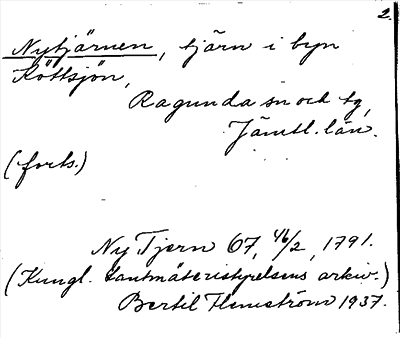 2.
Nytjärnen, tjärn i byn
Köttsjön,
Ragunda sn och tg,
Jämtl. län.
(forts.)
Ny Tjern 67, 46/2, 1791.
(Kungl. Lantmäteristyrelsens arkiv.)
Bertil Flemström 1937.